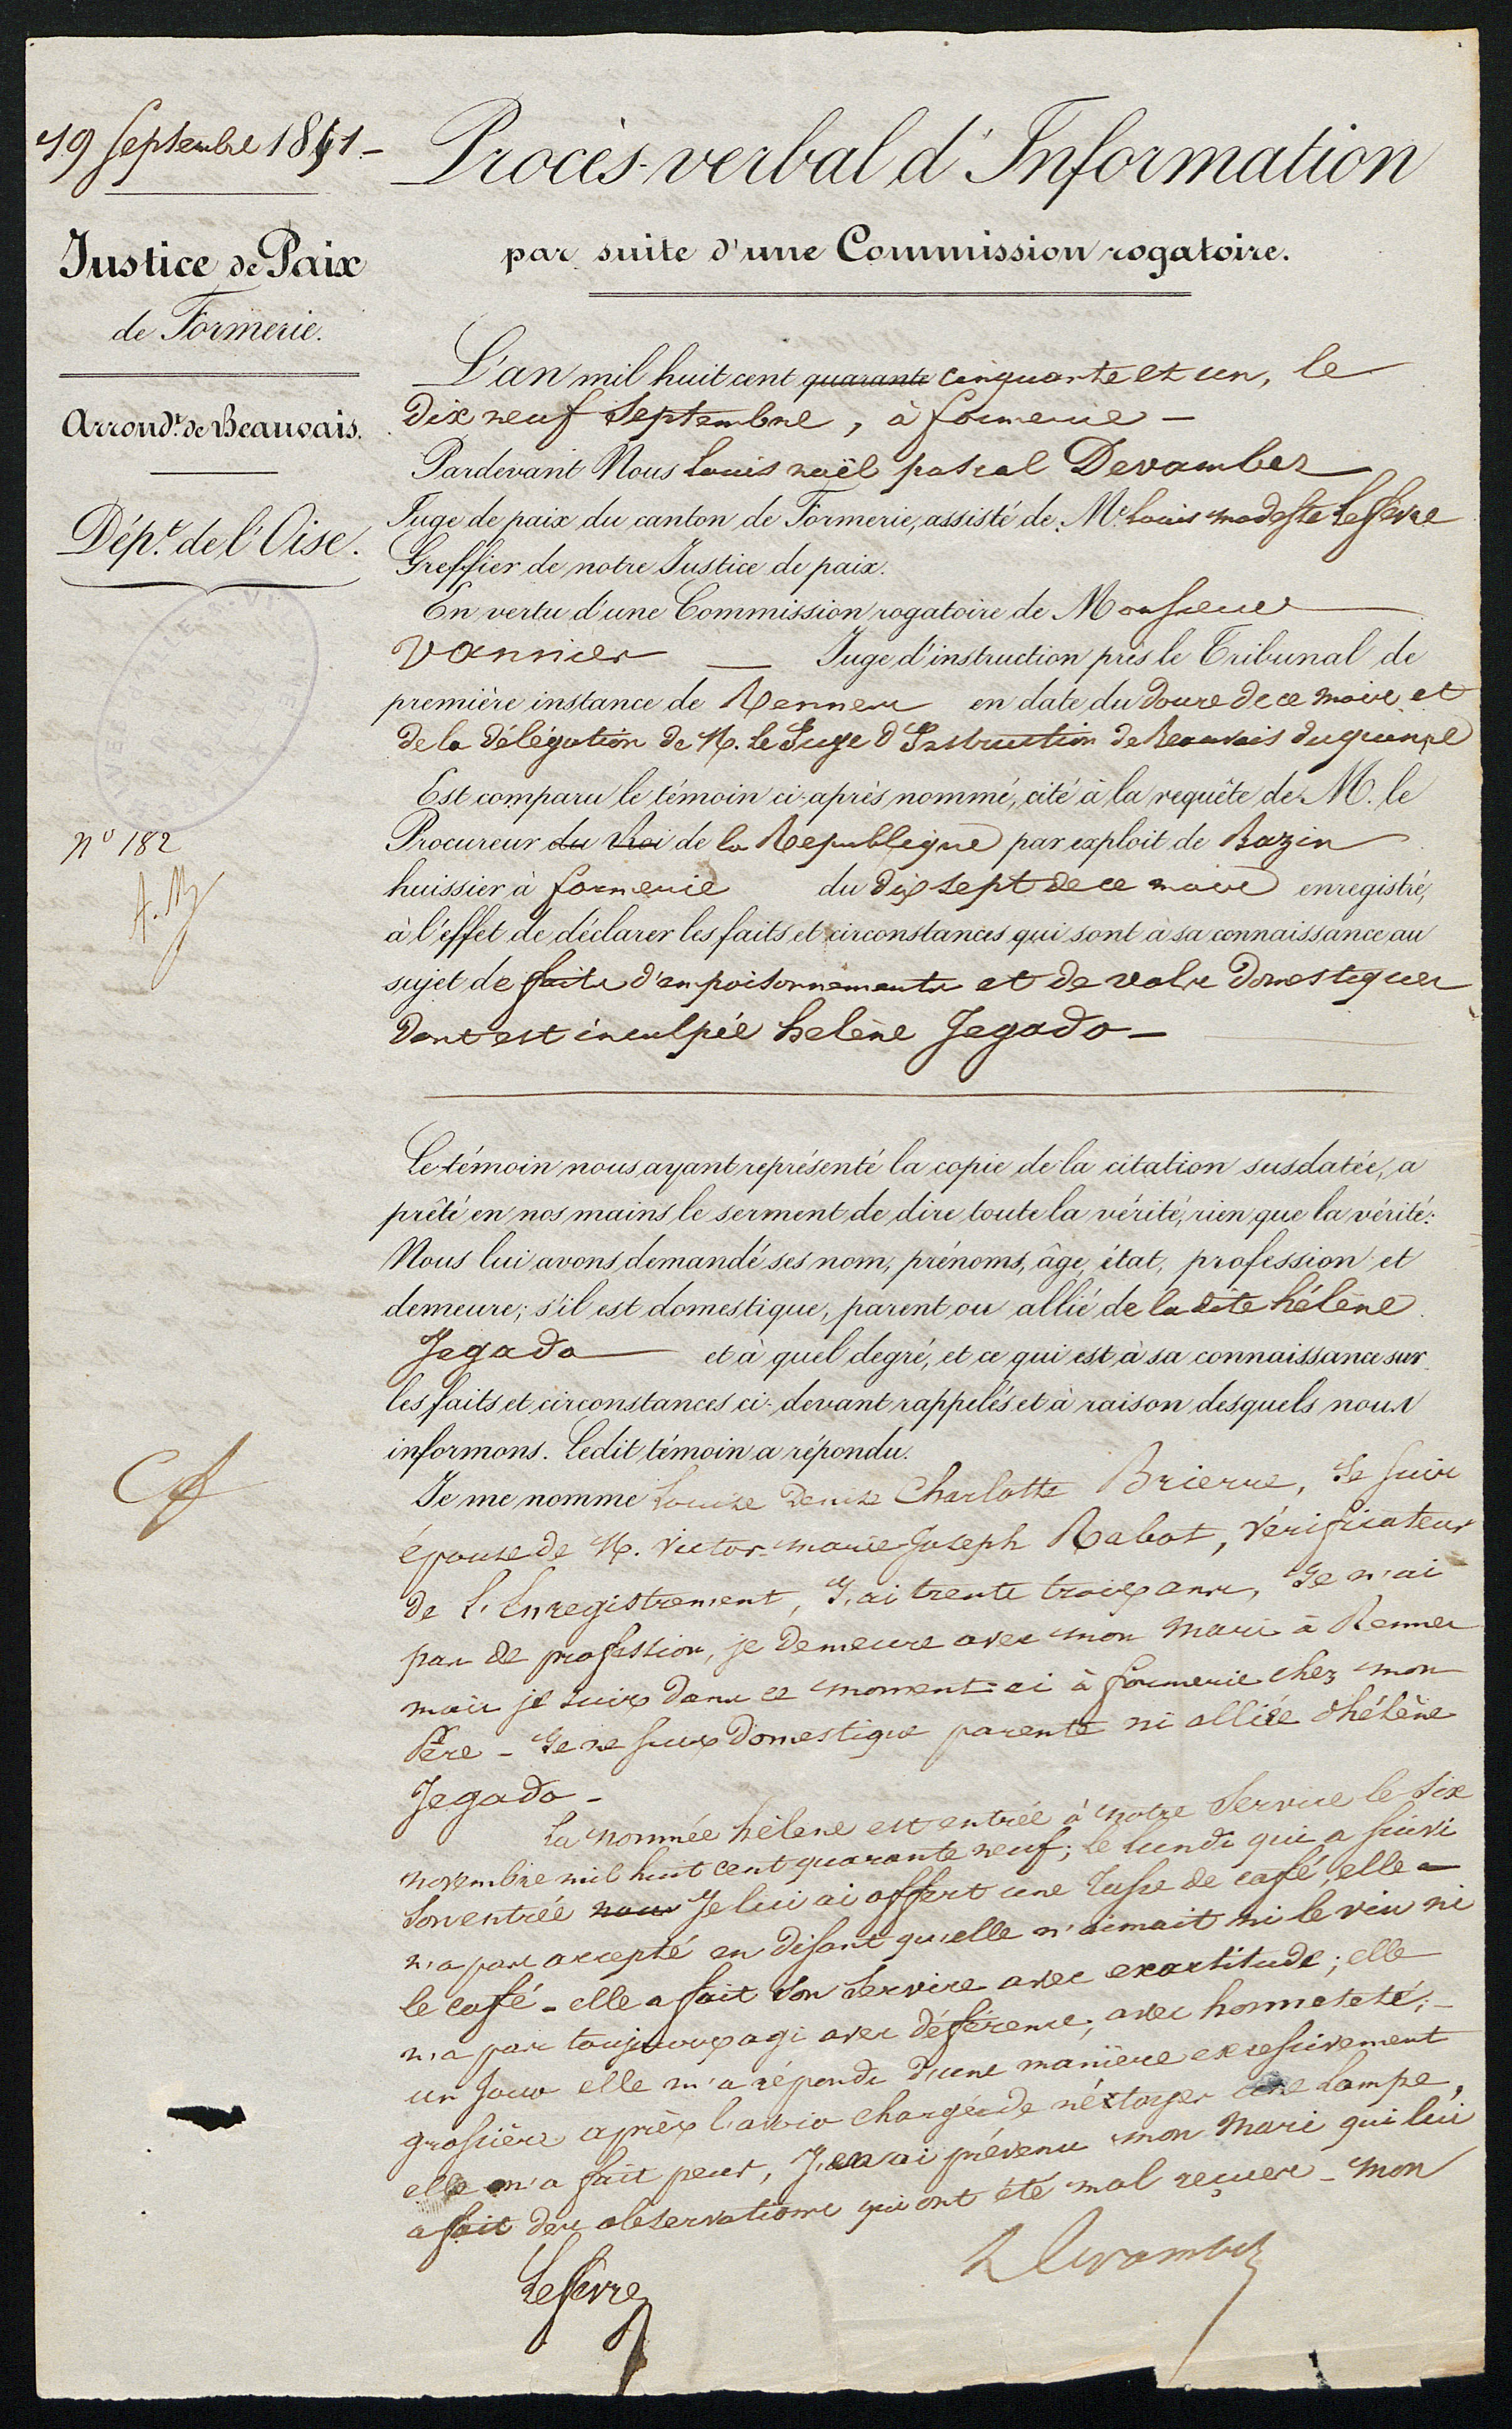 19 Septembre 1851.-
Justice de Paix
de Formerie.
Arrond.t de Beauvais.
Dép.t de l'Oise.
n° 182
Procès-verbal d'Information
par suite d'une Commission rogatoire.
L'an mil huit cent quarante cinquante et un, le
dix neuf Septembre, à formerie -
Pardevant Nous Louis noël pascal Devambez
Juge de paix du canton de Formerie, assisté de Me Louis modeste Lefevre
Greffier de notre Justice de paix.
En vertu d'une Commission rogatoire de Monsieur
Vannier Juge d'instruction près le Tribunal de
première instance de Rennes en date du douze de ce mois et
de la délégation de M. le Juge d'Instruction de Beauvais du quinze
Est comparu le témoin ci-après nommé, cité à la requête de M. le
Procureur du Roi de la République par exploit de Bazin
huissier à formerie du dix sept de ce mois enregistré,
à l'effet de déclarer les faits et circonstances qui sont à sa connaissance au
sujet de faits d'empoisonnements et de vols domestiques
dont est inculpée helène Jegado -
Le témoin nous ayant représenté la copie de la citation susdatée, a
prêté en nos mains le serment de dire toute la vérité, rien que la vérité:
Nous lui avons demandé ses nom, prénoms, âge, état, profession et
demeure; s'il est domestique, parent ou allié de la dite hélène
Jegado et à quel degré, et ce qui est à sa connaissance sur
les faits et circonstances ci-devant rappelés et à raison desquels nous
informons. Ledit témoin a répondu.
Je me nomme Louise Denise Charlotte Brierre, Je suis
épouse de M. Victor-marie Joseph Rabot, Vérificateur
de l'Enregistrement, J'ai trente trois ans, Je n'ai
pas de profession, je demeure avec mon mari à Rennes
mais je suis dans ce moment-ci à formerie chez mon
Père - Je ne suis domestique parente ni alliée d'hélène
Jegado -
La nommée hélène est entrée à notre Service le six
novembre mil huit cent quarante neuf; le lundi qui a suivi
Son entrée nous Je lui ai offert une tasse de café, elle
n'a pas accepté en disant qu'elle n'aimait ni le vin ni
le café - elle a fait son Service avec exactitude; elle
n'a pas toujours agi avec déférence, avec honneteté; -
un jour elle m'a répondu d'une manière excessivement
grossière après l'avoir chargée de néxtoyer une lampe,
elle m'a fait peur, J'en ai prévenu mon mari qui lui
a fait des observations qui ont été mal reçues - mon
Lefevre
Devambez